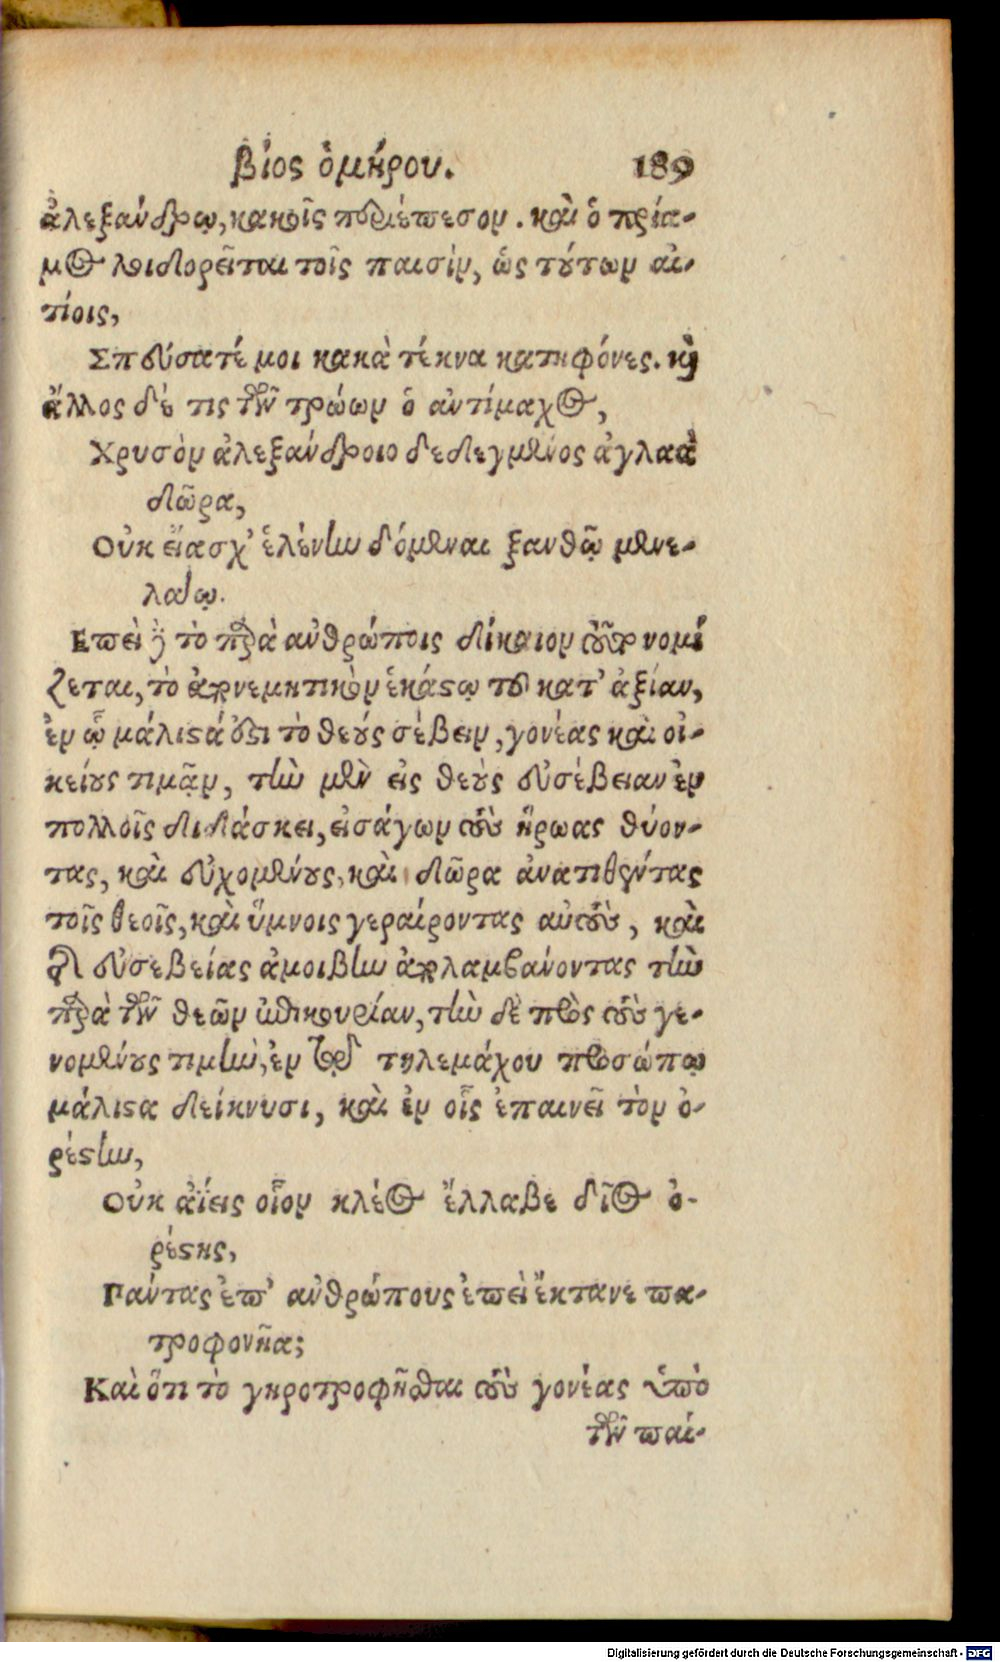 βίος ὁμήρου. 189
ἀλεξάνδρῳ, κακοῖς περιέπεσον. καὶ ὁ πρία-
μος λοιδορεῖται τοῖς παισὶν, ὡς τούτων αἰ-
τίοις,
Σπεύσατέ μοι κακὰ τέκνα κατηφόνες. καὶ
ἄλλος δέ τις τῶν τρώων ὁ ἀντίμαχος,
Χρυσὸν ἀλεξάνδροιο δεδεγμένος ἀγλαὰ
δῶρα,
Οὐκ εἴασχ' ἑλένην δόμεναι ξανθῷ μενε-
λάῳ.
Επεὶ δὲ τὸ παρὰ ἀνθρώποις δίκαιον οὖν νομί
ζεται, τὸ ἀπονεμητικὸν ἑκάστῳ τοῦ κατ' ἀξίαν,
ἐν ᾧ μάλιστά ἐστι τὸ θεοὺς σέβειν, γονέας καὶ οἰ-
κείους τιμᾷν, τὴν μὲν εἰς θεοὺς εὐσέβειαν ἐν
πολλοῖς διδάσκει, εἰσάγων τοὺς ἥρωας θύον-
τας, καὶ εὐχομένους, καὶ δῶρα ἀνατιθέντας
τοῖς θεοῖς, καὶ ὕμνοις γεραίροντας αὐτοὺς, καὶ
τῆς εὐσεβείας ἀμοιβὴν ἀπολαμβάνοντας τὴν
παρὰ τῶν θεῶν ἐπικουρίαν, τὴν δὲ πρὸς τοὺς γε-
νομένους τιμὴν, ἐν τῷ τηλεμάχου προσώπῳ
μάλιστα δείκνυσι, καὶ ἐν οἷς ἐπαινεῖ τὸν ὀ-
ρέστην,
Οὐκ ἀΐεις οἷον κλέος ἔλλαβε δῖος ὀ-
ρέστης,
Πάντας ἐπ' ἀνθρώπους ἐπεὶ ἔκτανε πα-
τροφονῆα;
Καὶ ὅτι τὸ γηροτροφῆσθαι τοὺς γονέας ὑπὸ
τῶν παί-
Digitalisierung gefördert durch die Deutsche Forschungsgemeinschaft - DFG